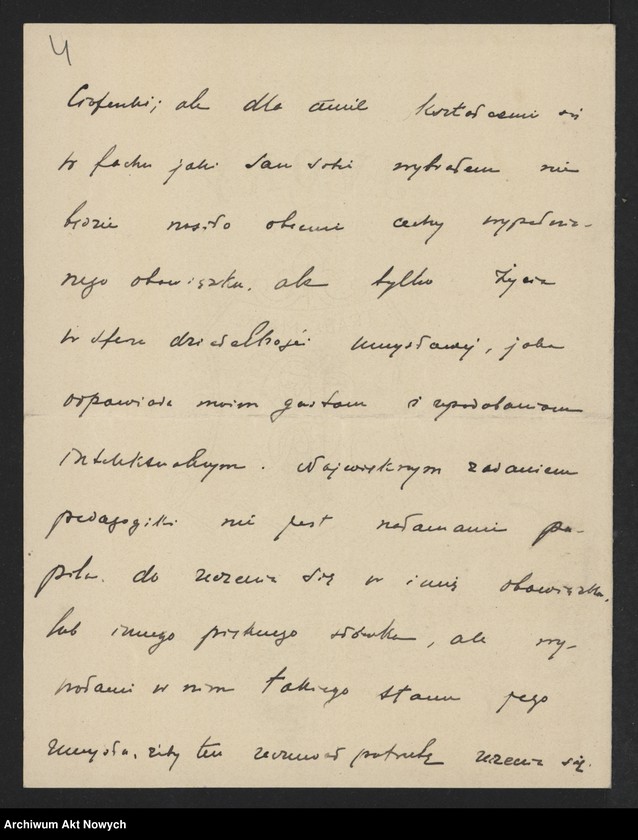 4
ale dla mnie kształcenie się
w fachu jaki sam sobie wybrałem nie
będzie nosiło obecnie cechy wypełnia-
nego obowiązku, ale tylko życia
w sferze działalności umysłowej, jaka
odpowiada moim gustom i upodobaniom
intelektualnym. Największym zadaniem
pedagogiki nie jest namawianie pu-
pila do uczenia się w imię obowiązku,
lub innego pięknego słówka, ale wy-
robienie w nim takiego stanu jego
umysłu, żeby ten uczuwał potrzebę uczenia się.
Archiwum Akt Nowych